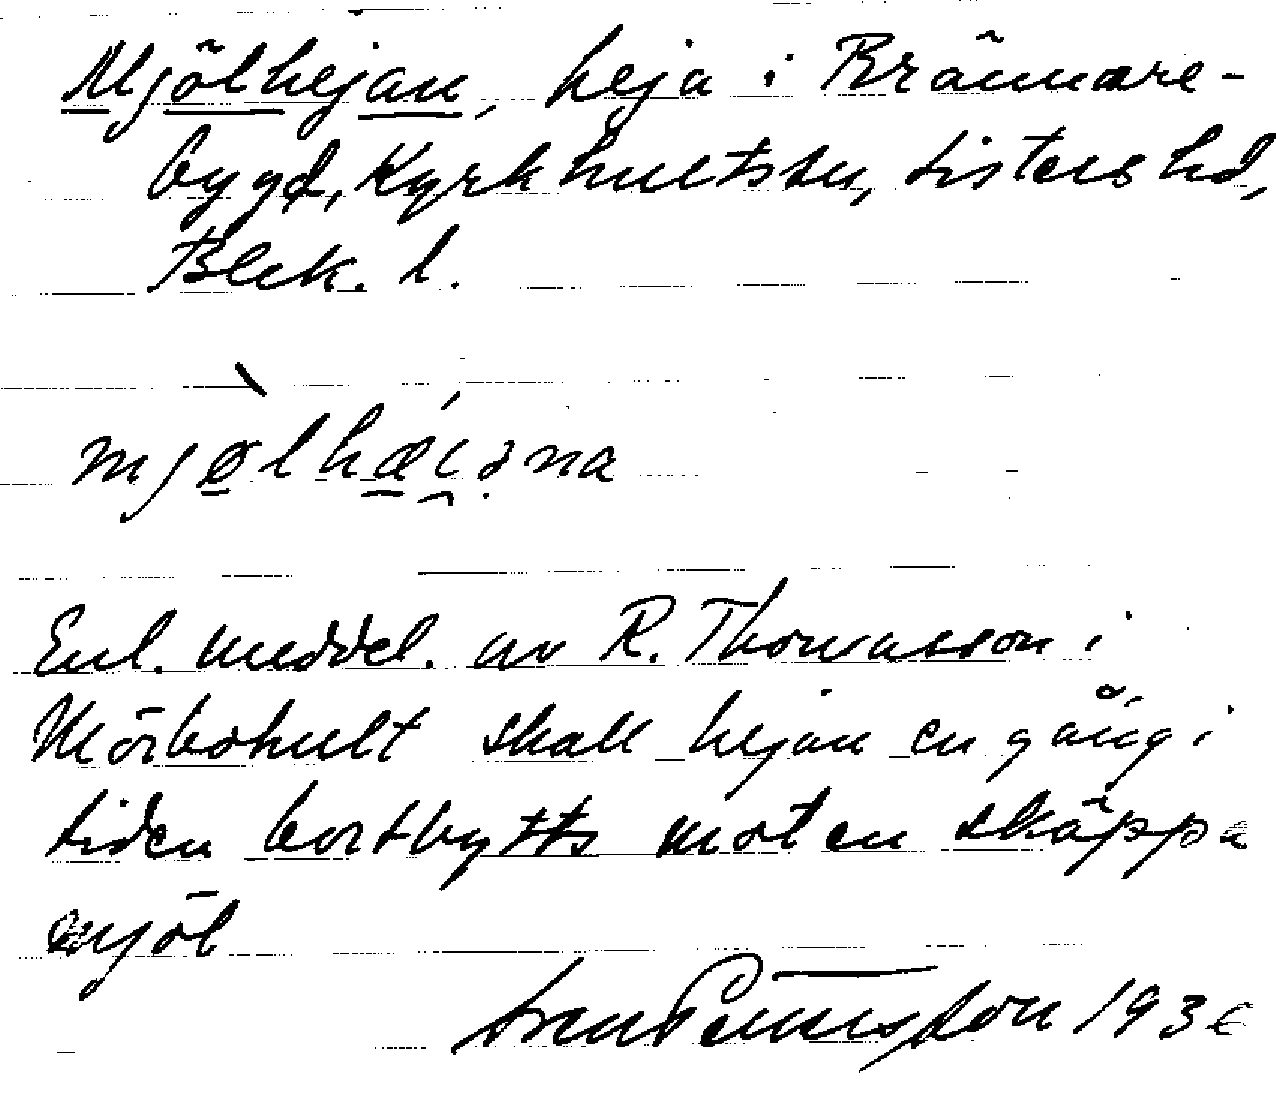 Mjölhejan, heja i Brännare-
bygd, Kyrkhults sn, Listers hd,
Blek. l.
mjølhæi̯əna
Enl. meddel. av R. Thomasson i
Mörbohult skall hejan en gång i
tiden bortbytts mot en skäppa
mjöl
Sven 1936